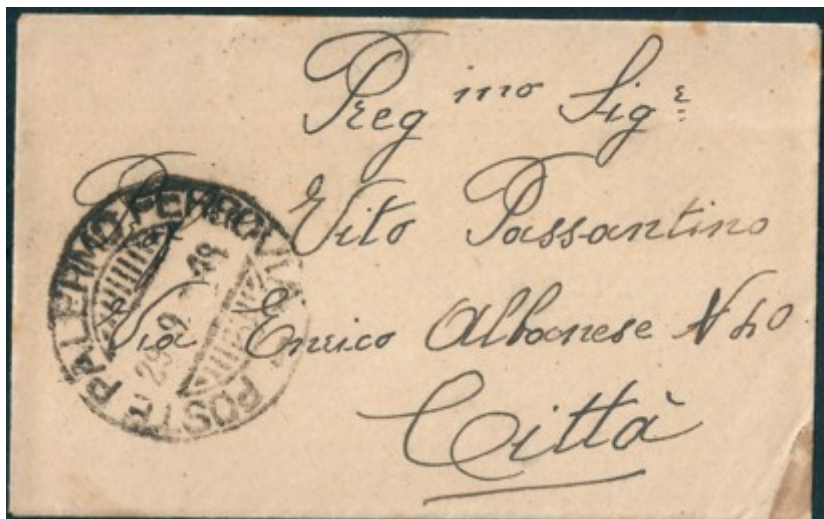 Preg mo Sigr
Vito Passantino
Via Enrico Albanese N 40
Città
POSTE PALERMO FERROVIA
29 9